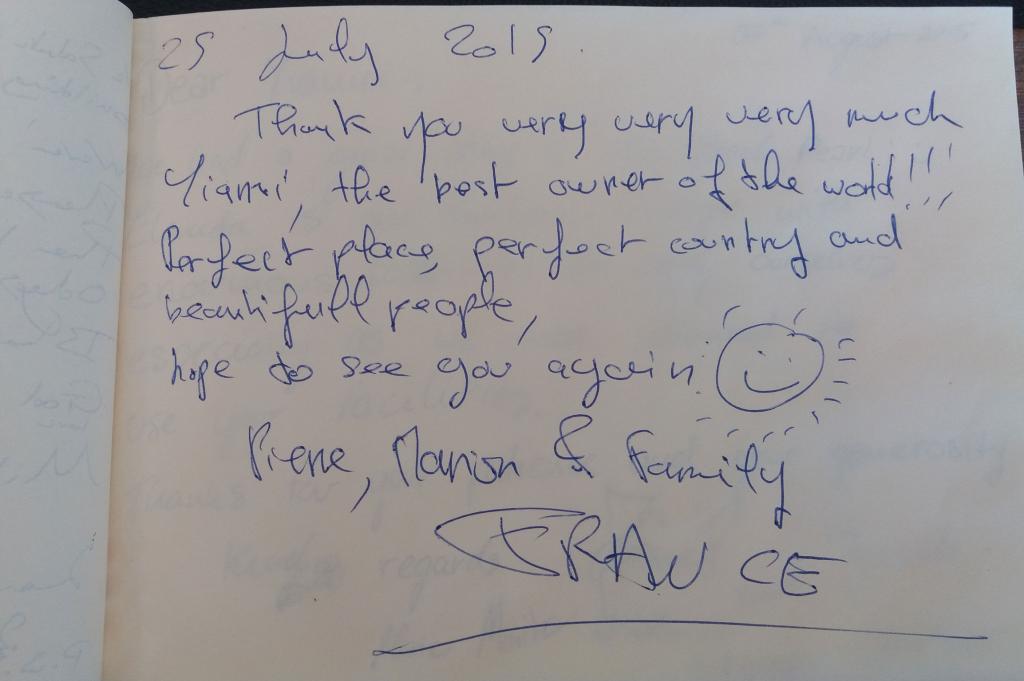 25 July 2015.
Thank you very very very much
Yianni, the best owner of the world!!!
Perfect place, perfect country and
beautifull people,
hope to see you again
Pierre, Marion & Family
FRANCE